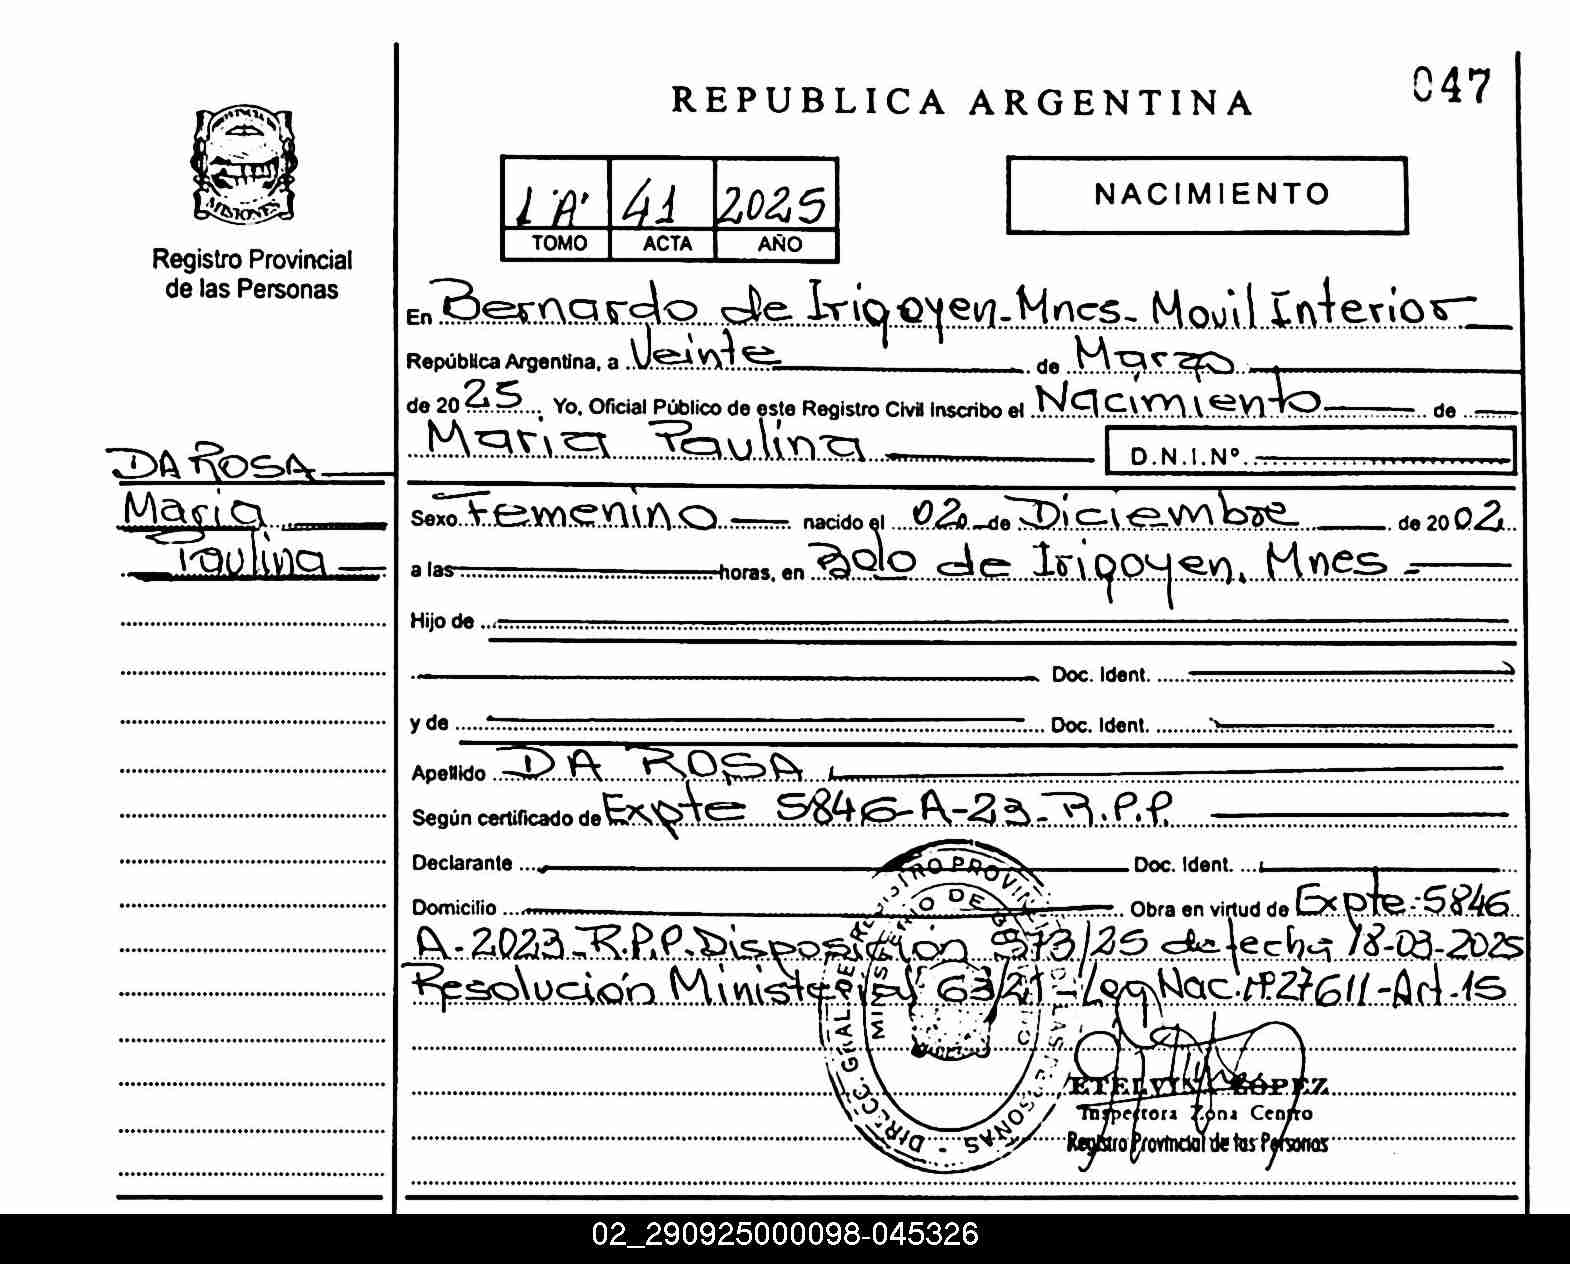 047
REPUBLICA ARGENTINA
MISIONES
Registro Provincial
de las Personas
1 "A" 41 2025
TOMO ACTA AÑO
NACIMIENTO
En Bernardo de Irigoyen-Mnes-Movil Interior
República Argentina, a Veinte de Marzo
de 2025, Yo, Oficial Público de este Registro Civil Inscribo el Nacimiento de
Maria Paulina D.N.I.Nº
DA ROSA
Maria
Paulina
Sexo Femenino nacido el 02 de Diciembre de 2002
a las horas, en Bdo de Irigoyen, Mnes
Hijo de
Doc. Ident.
y de Doc. Ident.
Apellido DA ROSA
Según certificado de Expte 5846-A-23-R.P.P.
Declarante Doc. Ident.
Domicilio Obra en virtud de Expte-5846
A-2023-R.P.P. Disposición 973/25 de fecha 18-03-2025
Resolución Ministerial 63/21-Ley Nac. Nº 27611-Art.15
DIRECC. GRAL. DEL REGISTRO PROVINCIAL DE LAS PERSONAS
MINISTERIO DE GOBIERNO
ETELVINA LÓPEZ
Inspectora Zona Centro
Registro Provincial de las Personas
02_290925000098-045326